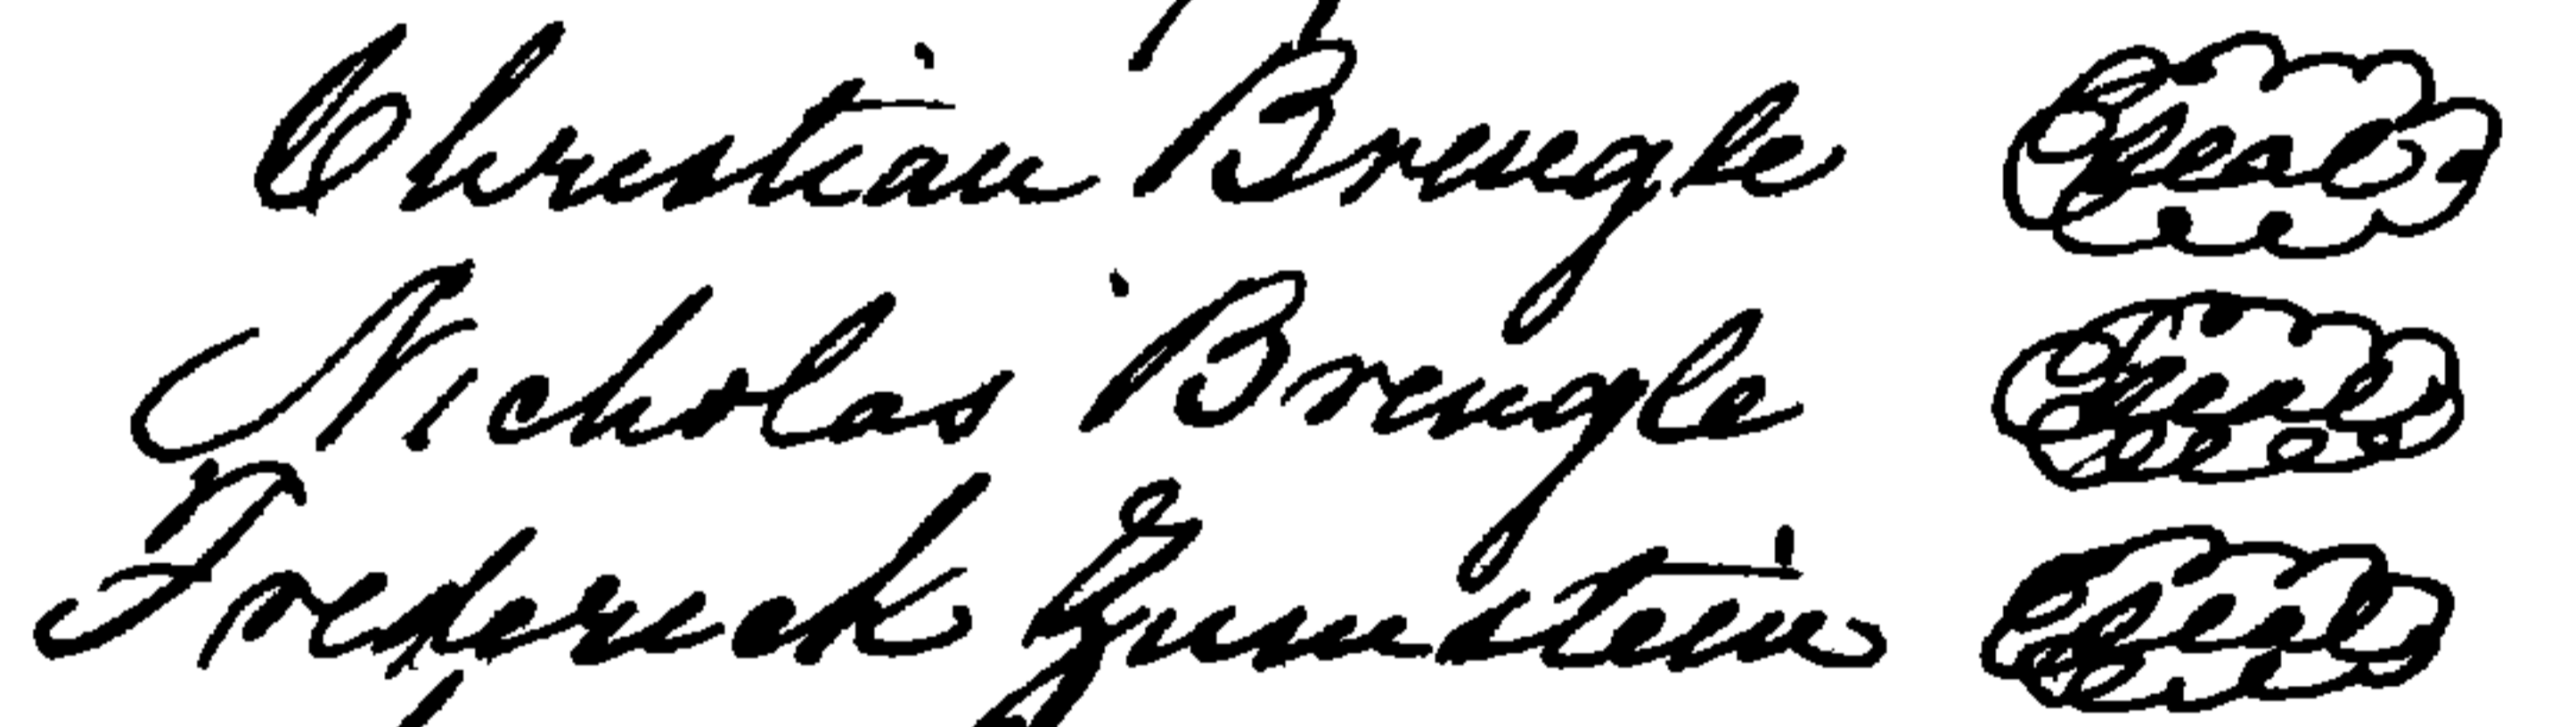 Christian Brengle Seal
Nicholas Brengle Seal
Frederick Seal